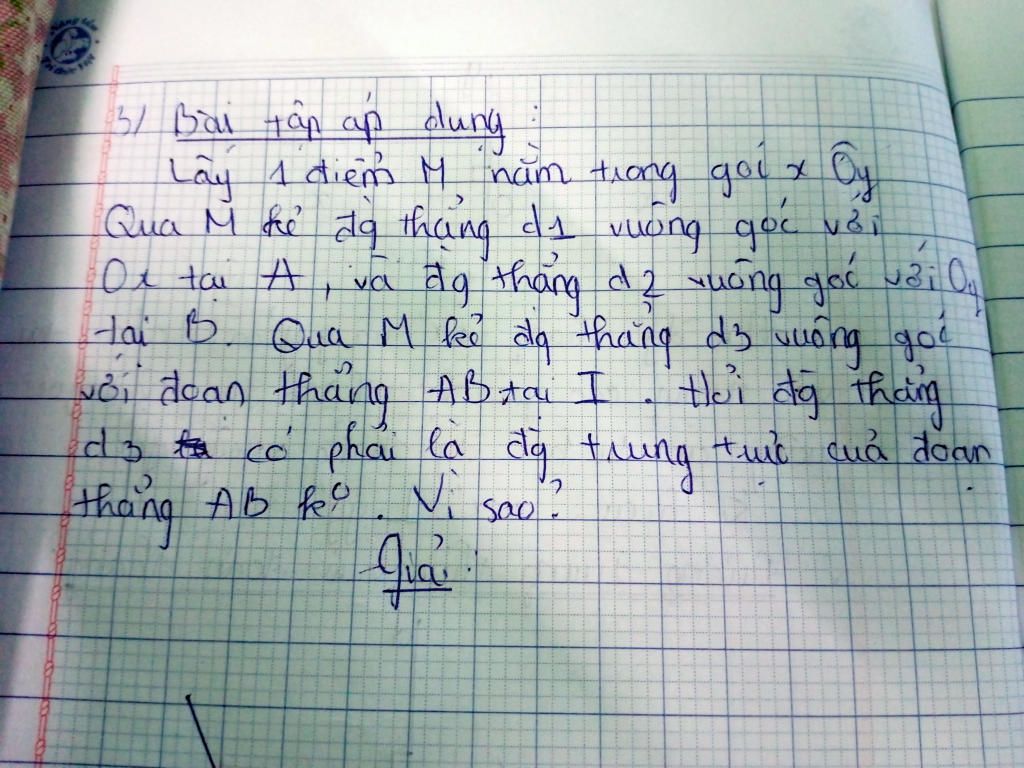 3/ Bài tập áp dụng :
Lấy 1 điểm M nằm trong góc xÔy
Qua M kẻ đg thẳng d1 vuông góc với
Ox tại A, và đg thẳng d2 vuông góc với Oy
tại B. Qua M kẻ đg thẳng d3 vuông góc
với đoạn thẳng AB tại I. Hỏi đg thẳng
d3 có phải là đg trung trực quả đoạn
thẳng AB ko. Vì sao?
Giải :